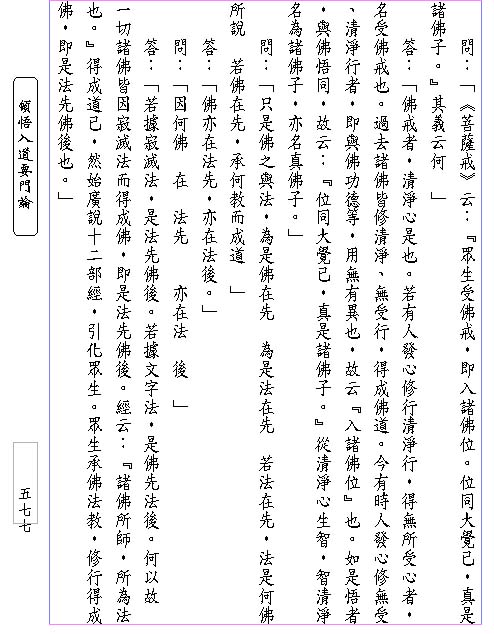 問：「《菩薩戒》云：『眾生受佛戒，即入諸佛位。位同大覺已，真是
諸佛子。』其義云何　」
答：「佛戒者，清淨心是也。若有人發心修行清淨行，得無所受心者，
名受佛戒也。過去諸佛皆修清淨、無受行，得成佛道。今有時人發心修無受
、清淨行者，即與佛功德等，用無有異也，故云『入諸佛位』也。如是悟者
，與佛悟同，故云：『位同大覺已，真是諸佛子。』從清淨心生智，智清淨
名為諸佛子，亦名真佛子。」
問：「只是佛之與法，為是佛在先　為是法在先　若法在先，法是何佛
所說　若佛在先，承何教而成道　」
答：「佛亦在法先，亦在法後。」
問：「因何佛　在　法先　亦在法　後　」
答：「若據寂滅法，是法先佛後。若據文字法，是佛先法後。何以故
一切諸佛皆因寂滅法而得成佛，即是法先佛後。經云：『諸佛所師，所為法
也。』得成道已，然始廣說十二部經，引化眾生。眾生承佛法教，修行得成
佛，即是法先佛後也。」
頓悟入道要門論
五七七